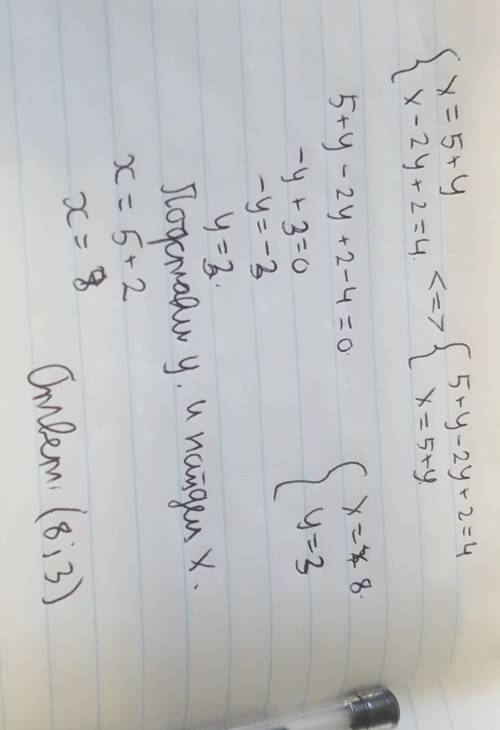 { x = 5 + y
x - 2y + 2 = 4. <=> { 5 + y - 2y + 2 = 4
x = 5 + y.
5 + y - 2y + 2 - 4 = 0.
-y + 3 = 0
-y = -3
y = 3.
{ x = 8.
y = 3
Подставим y. и найдем x.
x = 5 + 2
x = 8
Ответ: (8; 3)